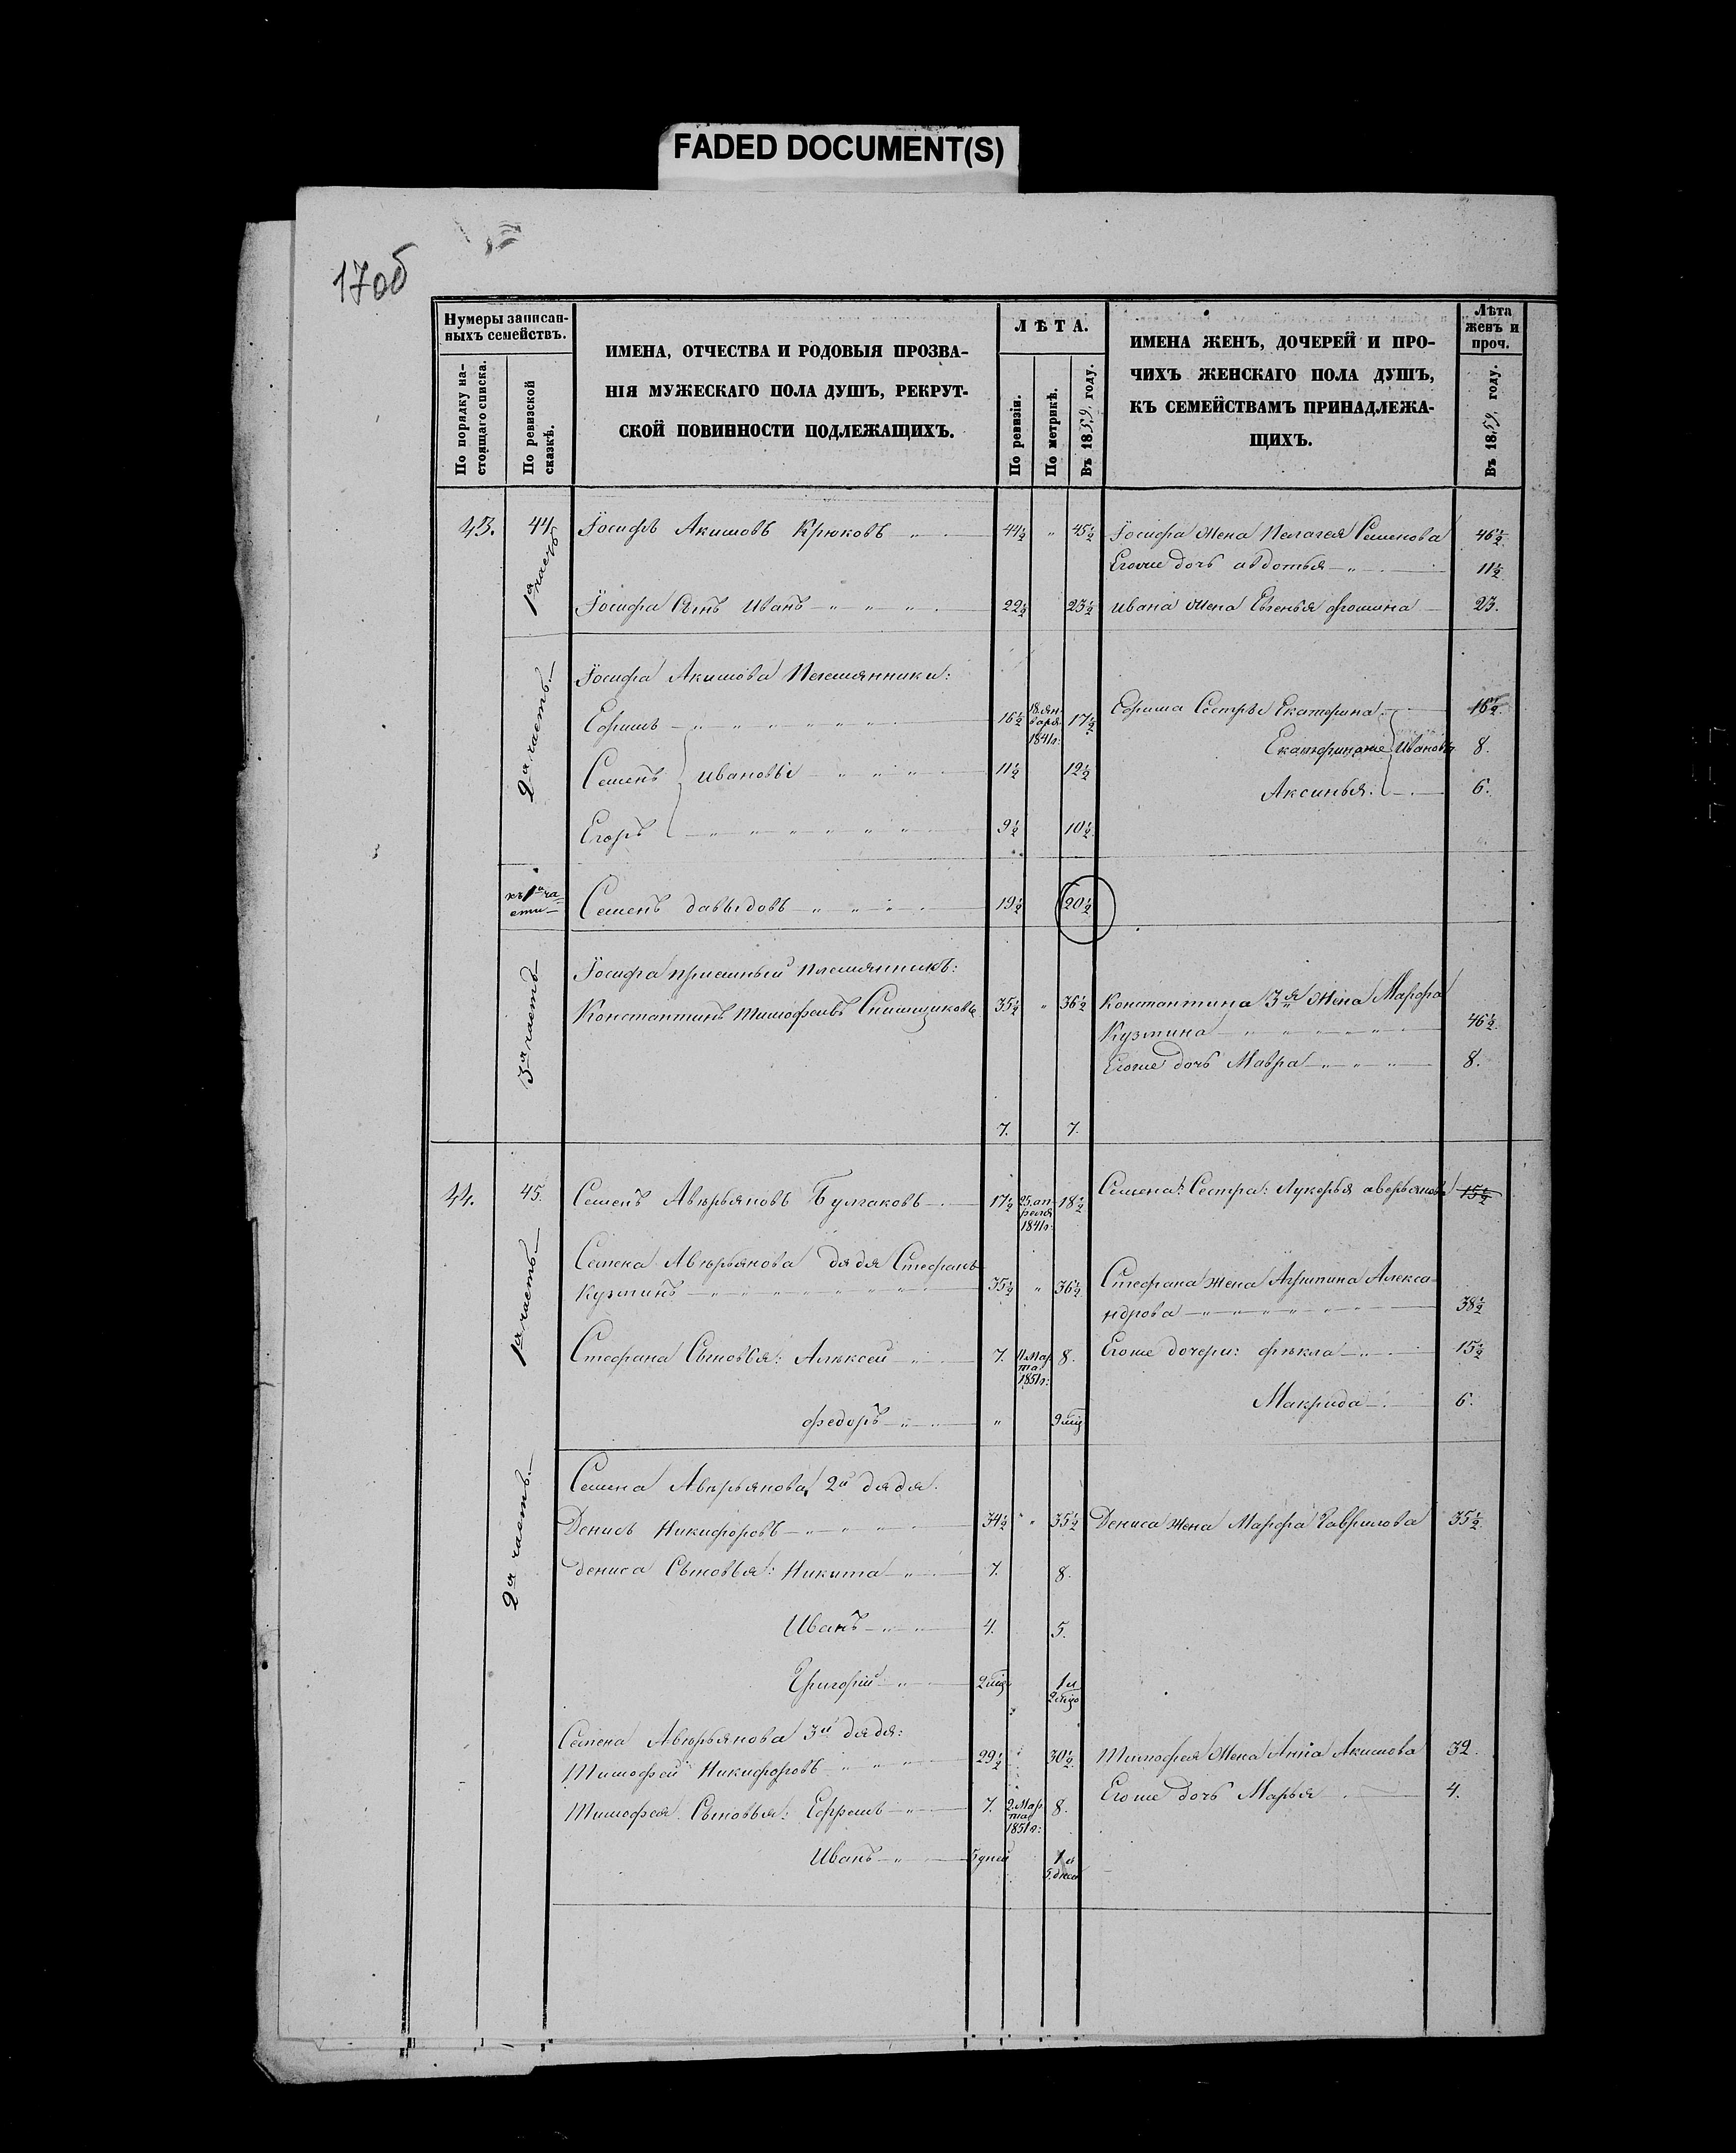 FADED DOCUMENT(S)
17об
Нумеры записан-
ныхъ семействъ.
По порядку на-
стоящаго списка.
По ревизской
сказкѣ.
ИМЕНА, ОТЧЕСТВА И РОДОВЫЯ ПРОЗВА-
НІЯ МУЖЕСКАГО ПОЛА ДУШЪ, РЕКРУТ-
СКОЙ ПОВИННОСТИ ПОДЛЕЖАЩИХЪ.
ЛѢТА.
По ревизіи.
По метрикѣ.
Въ 1859 году.
ИМЕНА ЖЕНЪ, ДОЧЕРЕЙ И ПРО-
ЧИХЪ ЖЕНСКАГО ПОЛА ДУШЪ,
КЪ СЕМЕЙСТВАМЪ ПРИНАДЛЕЖА-
ЩИХЪ.
Лѣта
женъ и
проч.
Въ 1859 году.
43. 44 Іосифъ Акимовъ Крюковъ 44½ " 45½ Іосифа жена Пелагея Семенова 46½
1я часть
Егоже дочь авдотья 11½
Іосифа Сынъ Иванъ 22½ 23½ ивана жена Евгенья фомина 23.
2я часть.
Іосифа Акимова Племянники:
Ефимъ 16½ 18 ян-
варя
1841г: 17½ Ефима Сестры Екатерина 16½
Екатеринаже Ивановы 8.
Семенъ ивановы 11½ 12½
Аксинья: 6.
Егоръ 9½ 10½
къ 1й ча-
сти Семенъ давыдовъ 19½ 20½
3я часть
Іосифа приемный племянникъ:
Константинъ Тимофеевъ 35½ " 36½ Константина 3я жена Марфа
Кузмина 46½
Егоже дочь Мавра 8.
7. 7.
44. 45. Семенъ Аверьяновъ Булгаковъ 17½ 25. ап-
реля
1841г: 18½ Семена: Сестра: Лукерья аверьянова 15½
1я часть
Семена Аверьянова дядя Стефанъ
Кузминъ 35½ " 36½ Стефана жена Агрипина Алекса-
ндрова 38½
Стефана Сыновья: Алексей 7. 11 Мар
та
1851г: 8. Егоже дочери: фекла 15½
Макрида 6.
федоръ " 9 мц
2я часть.
Семена Аверьянова, 2й дядя.
Денисъ Никифоровъ 34½ " 35½ Дениса жена Марфа Гаврилова 35½
дениса Сыновья: Никита 7. 8.
Иванъ 4. 5.
Григорій 2 мц 1 и
2 мцо
Семена Аверьянова 3й дядя:
Тимофей Никифоровъ 29½ 30½ Тимофея жена Анна Акимова 32.
Тимофея Сыновья: Ефремъ 7. 2. Мар
та
1851г: 8. Егоже дочь Марья 4.
Иванъ 5 дней 1 и
5 дней